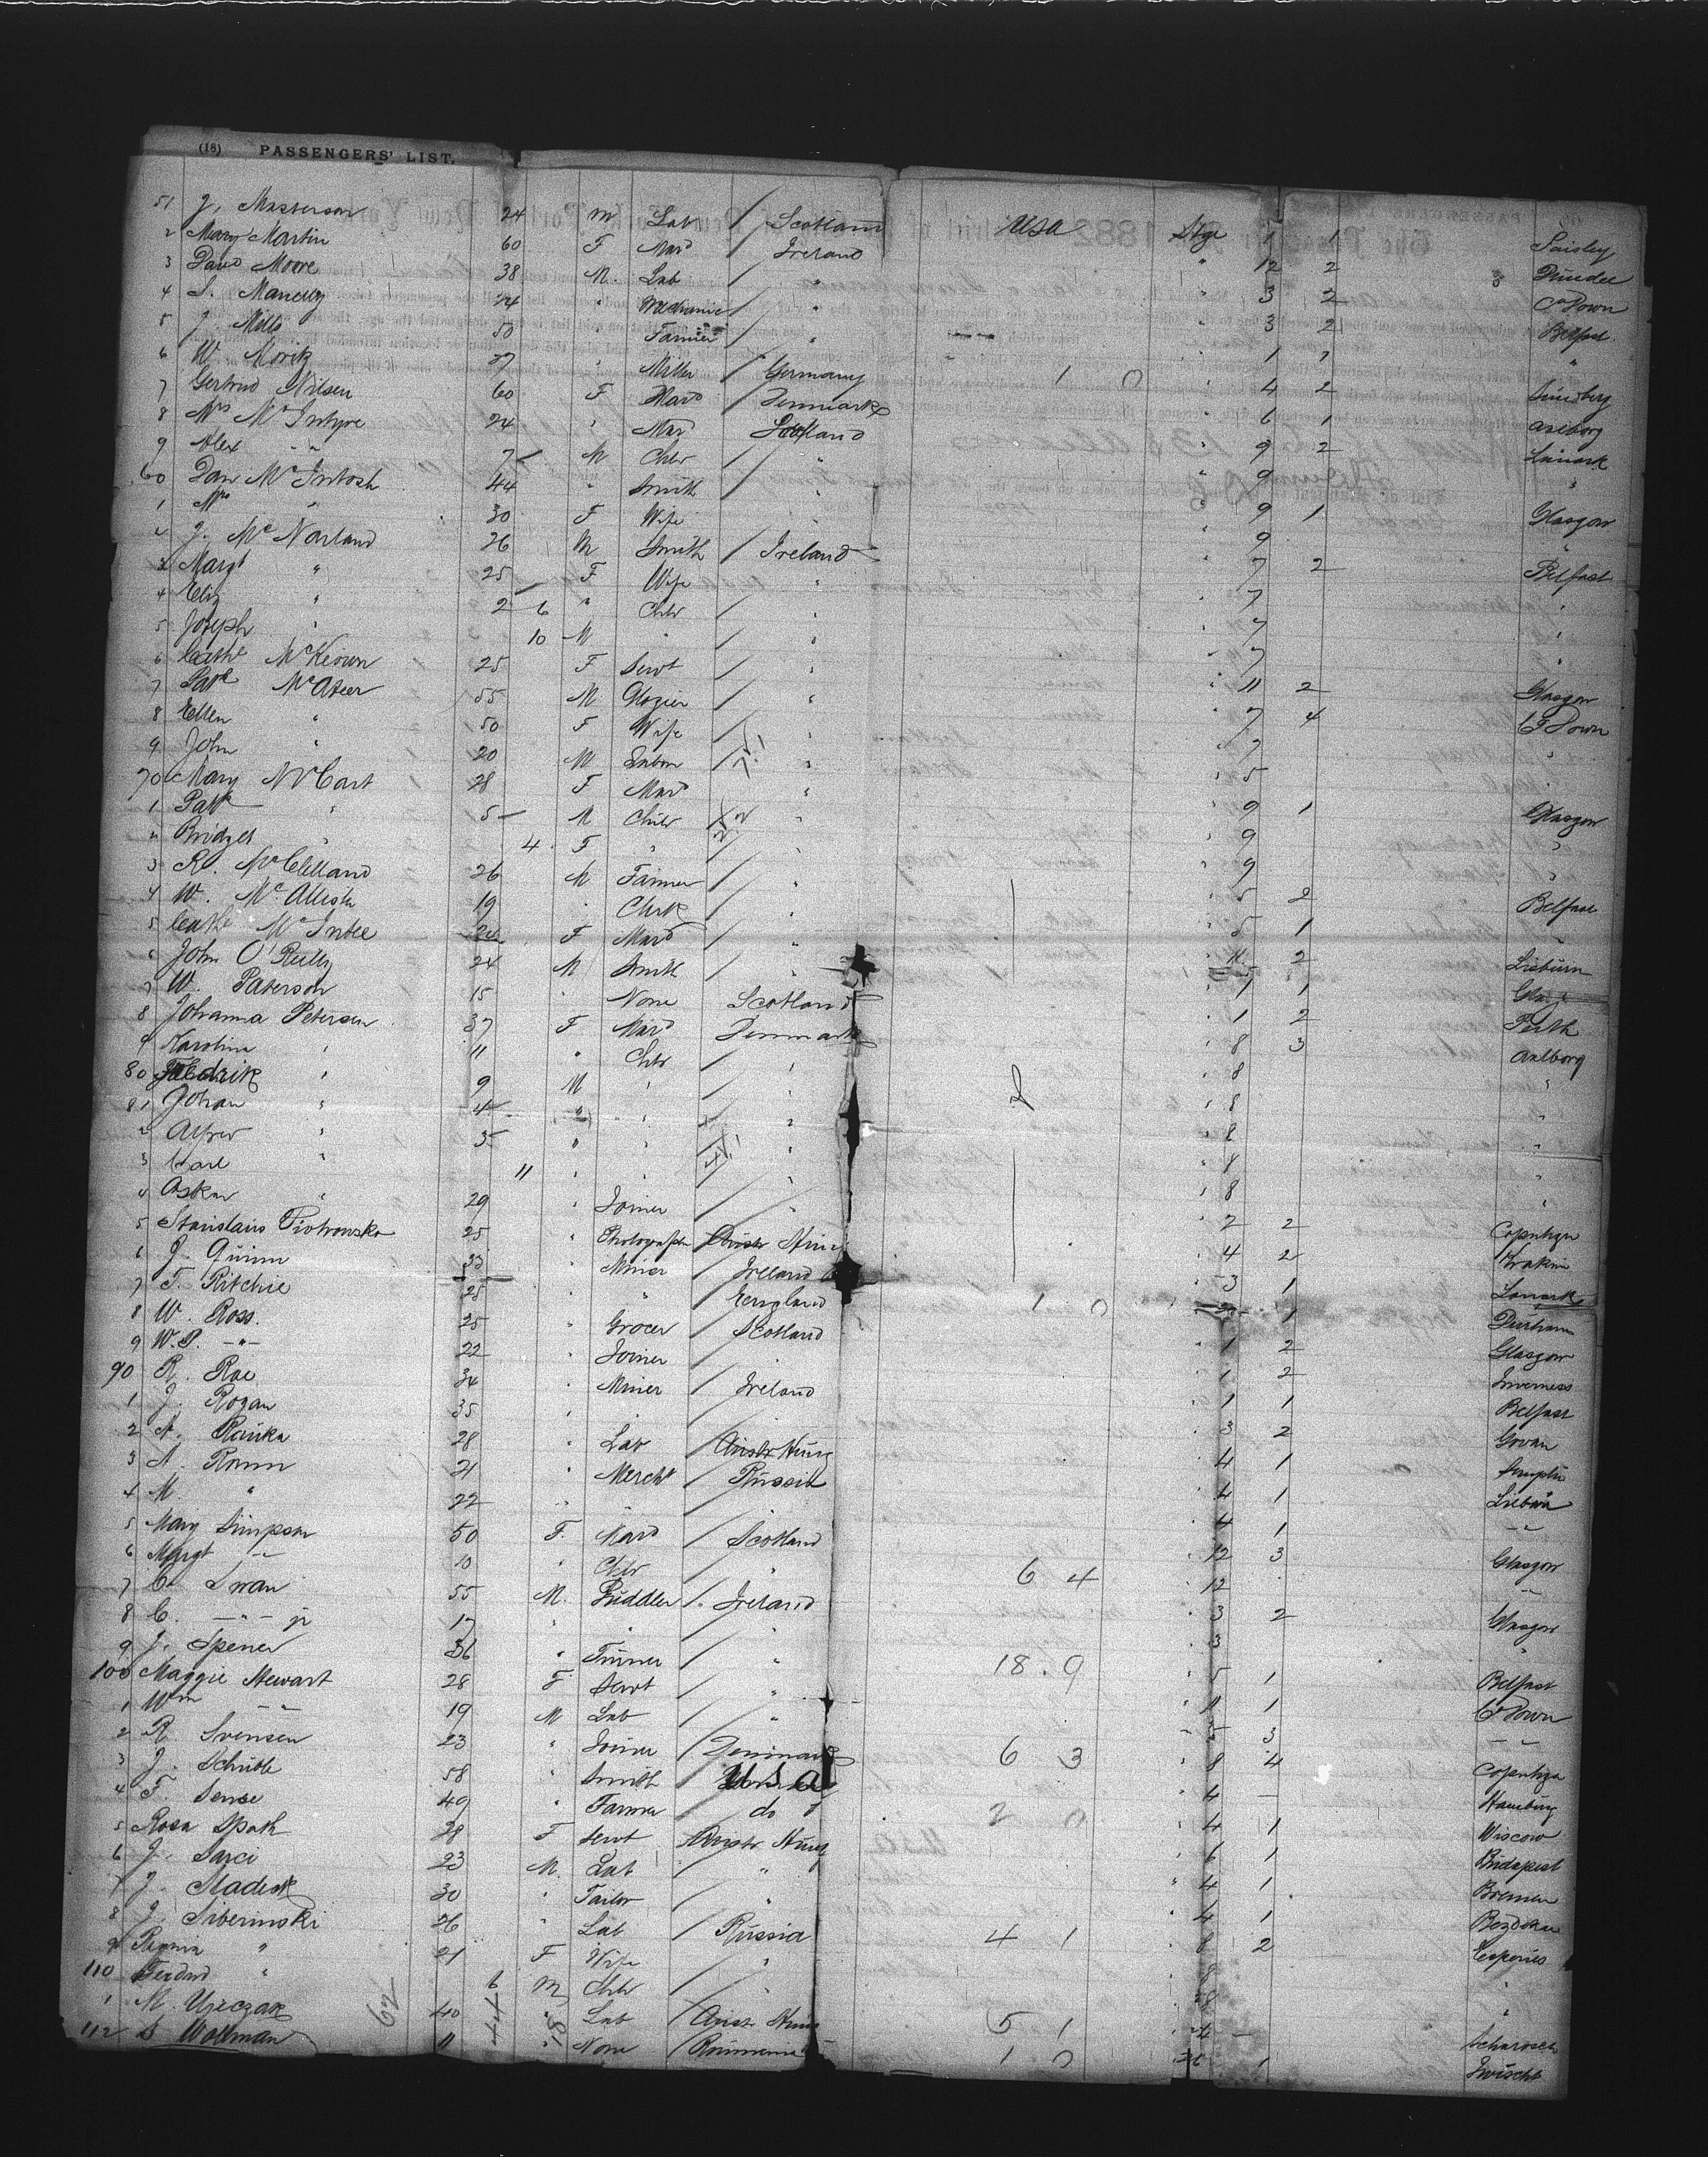 (18) PASSENGERS' LIST.
51 J. Masterson 24 m Lab / Scotland USA Stge 1 1 Paisley
2 Mary Martin 60 F Mard / Ireland " 12 2 Dundee
3 David Moore 38 M. Lab / " " 3 2 Co Down
4 24 " Mechanic / " " 3 2 Belfast
5 J. Mills 50 " Farmer / " " 1 1 "
6 W. Moritz 27 " Miller / Germany 1 0 " 4 2
7 Gertrud Nilsen 60 F Mard / Denmark " 6 1
8 Mrs McIntyre 24 " Mard Scotland " 9 2 Lanark
9 Alex " " 7 M Child / " " 9 "
60 Danl McIntosh 44 " Smith / " " 9 1 Glasgow
1 Mrs " 30 F Wife " 9 "
2 J. McNarland 26 M Smith / Ireland " 7 2 Belfast
3 Margt " 25 F Wife " " 7 "
4 Eliz " 2 6 " Child / " " 7 "
5 Joseph " 10 M " / " " 7 "
6 Cathe McKeown 25 F Servt / " " 11 2 Glasgow
7 Patk McAteer 55 M Glazier / " " 7 4 Co Down
8 Ellen " 50 F Wife / " " 7 "
9 John " 20 M Labor / " " 5 "
70 Mary McCart 28 F Mard " " 9 1 Glasgow
1 Patk " 5 M Child " " 9 "
2 Bridget " 4 F " / " " 9 "
3 R. McClelland 26 M Farmer / " " 5 2 Belfast
4 W. McAllister 19 " Clerk / " " 5 1 "
5 Cathe McIntee 24 F Mard / " " 11 2 Lisburn
6 John O'Reilly 24 M Smith / " " 1 1
7 W. Paterson 15 " None Scotland " 1 2 Perth
8 Johanna Petersen 37 F Mard / Denmark " 8 3 Aalborg
9 Karolina " 11 " Child / " " 8 "
80 Fredrik " 9 M " / " " 8 "
81 Johan " 4 " " / " " 8 "
2 Alfred " 3 " " " " 8 "
3 Carl " 11 " " / " " 8 "
4 Oskar " 29 " Joiner / " " 2 2 Copenhgn
5 Stanislaus Piotrowski 25 " Photographer / Austr Hung " 4 2
6 J. Quinn 33 " Miner / Ireland " 3 1 Lanark
7 T. Ritchie 25 " " / England 1 0 " 1 Durham
8 W. Ross. 25 " Grocer / Scotland " 1 2 Glasgow
9 W.P. -"- 22 " Joiner / " 1 2 Inverness
90 R. Rae 34 " Miner / Ireland " 1 1 Belfast
1 J. Rogan 35 " " / " " 3 2 Govan
2 A. Rauka 28 " Lab / Austr Hung " 4 1
3 A. Romm 21 " Mercht / Russia " 4 1 Liebau
4 M " 22 " " " " 4 1 -"-
5 Mary Simpson 50 F. Mard / Scotland " 12 3 Glasgow
6 Margt -"- 10 " Child " 6 4 " 12 -"-
7 C. Swan 55 M. Puddler / Ireland " 3 2 Glasgow
8 C. -"- jr 17 " " / " " 3 "
9 J. Spencer 36 " Turner / " 18. 9 " 5 1 Belfast
100 Maggie Stewart 28 F Servt / " " 11 1 Co Down
1 Wm -"- 19 M Lab / " 5 3 -"-
2 R. Svensen 23 " Joiner / Denmark 6 3 " 8 4 Copenhgn
3 J. Schuble 58 " Smith / U.S.A. " 4 - Hamburg
4 F. Sense 49 " Farmer / do 2 0 " 4 1 Wiscow
5 Rosa Spath 28 F Servt Austr Hung USA " 6 1 Budapest
6 J. Sarci 23 M. Lab / " " 4 1 Bremen
7 J. Sladeck 30 " Tailor / " " 4 1
8 J. Siberinski 26 " Lab / Russia 4 1 " 8 2 Eesperies
9 Regnia " 21 F Wife / " " 8 "
110 Ferdnd " 6 M Child / " " 8 "
1 M. Ujczak 40 " Lab / Austr Hung 5 1 " 4 -
112 S Wollman 11 " None / Roumenia 1 0 1
62 44 18